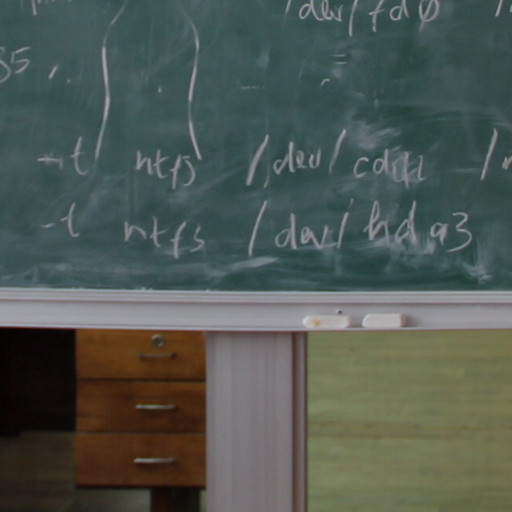 /dev/fd0
35
-t ntfs /dev/
-t ntfs /dev/hda3